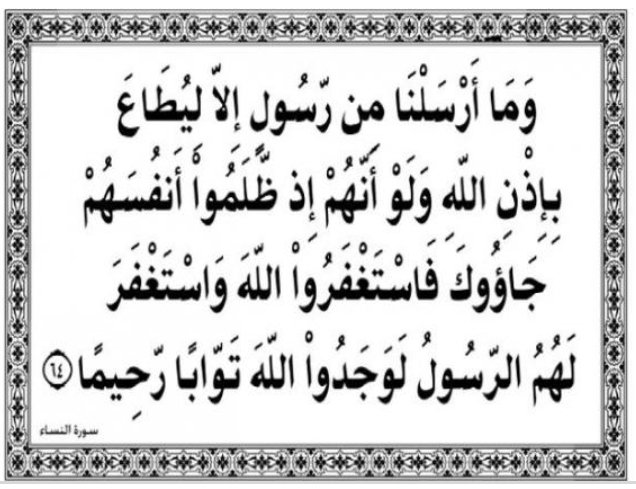 وَمَا أَرْسَلْنَا مِن رَّسُولٍ إِلاَّ لِيُطَاعَ
بِإِذْنِ اللّهِ وَلَوْ أَنَّهُمْ إِذ ظَّلَمُواْ أَنفُسَهُمْ
جَآؤُوكَ فَاسْتَغْفَرُواْ اللّهَ وَاسْتَغْفَرَ
لَهُمُ الرَّسُولُ لَوَجَدُواْ اللّهَ تَوَّابًا رَّحِيمًا ٦٤
سورة النساء